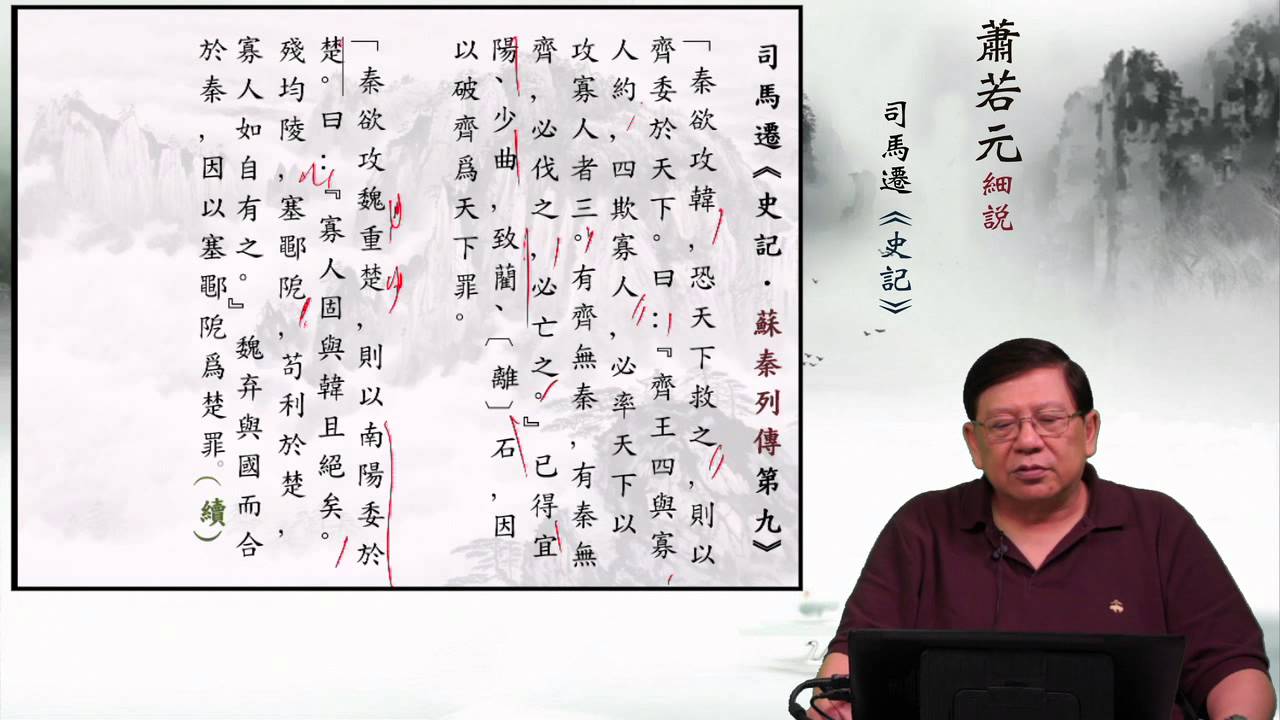 蕭若元細說
司馬遷《史記》
司馬遷《史記．蘇秦列傳第九》
「秦欲攻韓，恐天下救之，則以
齊委於天下。曰：『齊王四與寡
人約，四欺寡人，必率天下以
攻寡人者三。有齊無秦，有秦無
齊，必伐之，必亡之。』已得宜
陽、少曲，致藺、〔離〕石，因
以破齊爲天下罪。
「秦欲攻魏重楚，則以南陽委於
楚。曰：『寡人固與韓且絕矣。
殘均陵，塞鄳阸，苟利於楚，
寡人如自有之。』魏弃與國而合
於秦，因以塞鄳阸爲楚罪。(續)